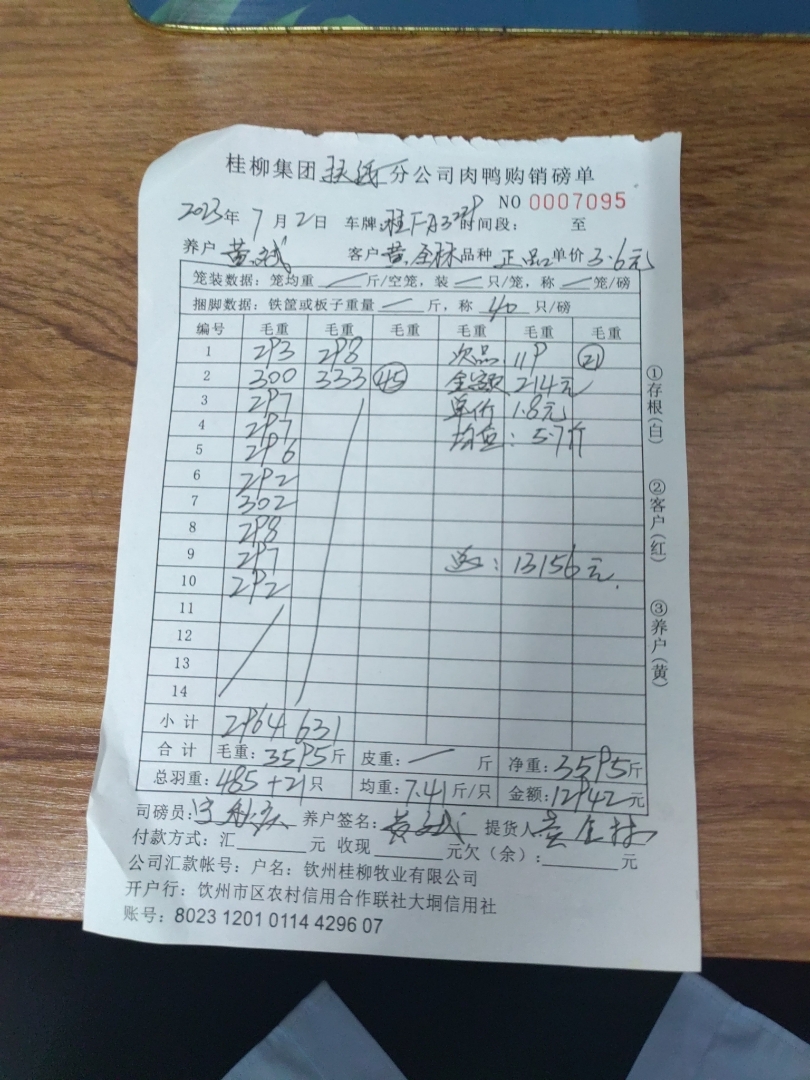 桂柳集团 分公司肉鸭购销磅单
NO 0007095
2023年 7月2日 车牌: 时间段: 至
养户 黄 客户 黄全林 品种 正品 单价 3.6元
笼装数据: 笼均重 — 斤/空笼, 装 — 只/笼, 称 — 笼/磅
捆脚数据: 铁筐或板子重量 — 斤, 称 40 只/磅
编号 毛重 毛重 毛重 毛重 毛重
1 293 298 次品 119 (21)
2 300 333 (45) 金额 214元
3 297 单价 1.8元
4 297 均重: 5.7斤
5 296
6 292
7 302
8 298
9 297 总: 13156元.
10 292
11
12
13
14
小计 2964 631
合计 毛重: 3595斤 皮重: — 斤 净重: 3595斤
总羽重: 485+21只 均重: 7.41斤/只 金额: 12942元
司磅员: 养户签名: 提货人 黄全林
付款方式: 汇______元 收现______元欠(余):______元
公司汇款帐号: 户名: 钦州桂柳牧业有限公司
开户行: 饮州市区农村信用合作联社大垌信用社
账号: 8023 1201 0114 4296 07
①存根(白)
②客户(红)
③养户(黄)